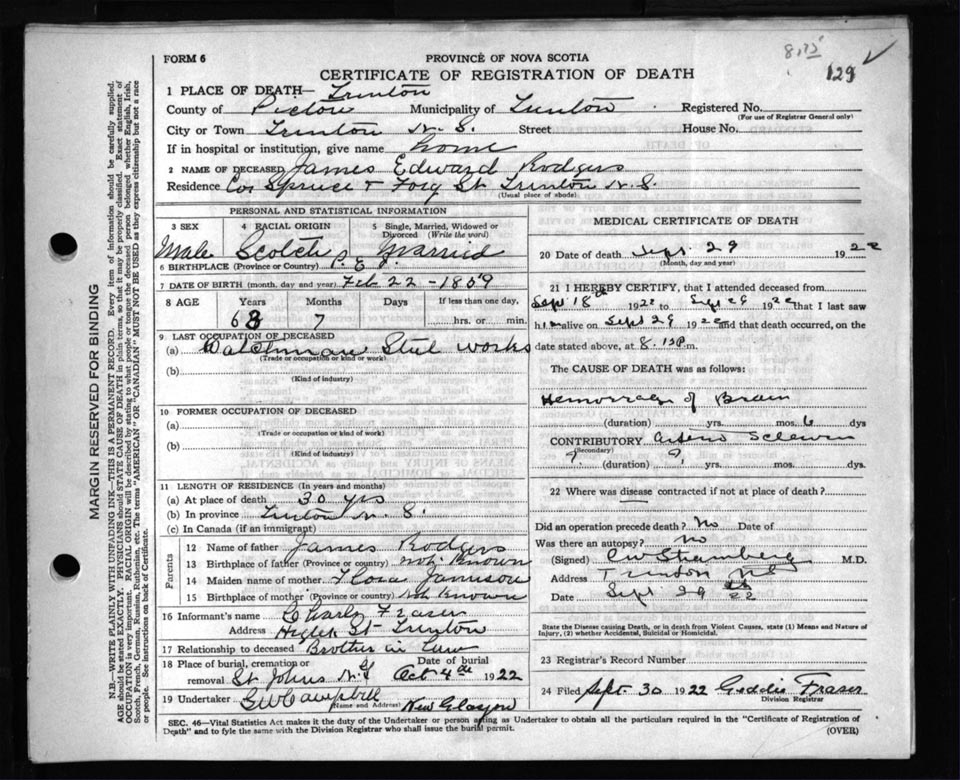 8,15
129
FORM 6
PROVINCE OF NOVA SCOTIA
CERTIFICATE OF REGISTRATION OF DEATH
1 PLACE OF DEATH— Trenton
County of Pictou Municipality of Trenton Registered No.
(For use of Registrar General only)
City or Town Trenton N. S. Street House No.
If in hospital or institution, give name home
2 NAME OF DECEASED James Edward Rodgers
Residence Cor Spruce + St Trenton N. S.
(Usual place of abode)
PERSONAL AND STATISTICAL INFORMATION
3 SEX 4 RACIAL ORIGIN 5 Single, Married, Widowed or Divorced (Write the word)
Male Scotch Married
6 BIRTHPLACE (Province or Country) P. E. I.
7 DATE OF BIRTH (month, day and year) Feb 22 - 1859
8 AGE Years Months Days If less than one day,
63 7 hrs. or min.
9 LAST OCCUPATION OF DECEASED
(a) Watchman Steel works
(Trade or occupation or kind or work)
(b)
(Kind of industry)
10 FORMER OCCUPATION OF DECEASED
(a)
(Trade or occupation or kind of work)
(b)
(Kind of industry)
11 LENGTH OF RESIDENCE (In years and months)
(a) At place of death 30 yrs
(b) In province Trenton N. S.
(c) In Canada (if an immigrant)
Parents
12 Name of father James Rodgers
13 Birthplace of father (Province or country) not Known
14 Maiden name of mother Flora Jamieson
15 Birthplace of mother (Province or country) Not Known
16 Informant's name Charly Fraser
Address High St Trenton
17 Relationship to deceased Brother in Law
18 Place of burial, cremation or removal St Johns N. S Date of burial Oct 4th 1922
19 Undertaker G W Campbell New Glasgow
(Name and Address)
MEDICAL CERTIFICATE OF DEATH
20 Date of death Sept. 29 1922
(Month, day and year)
21 I HEREBY CERTIFY, that I attended deceased from
Sept 18th 1922 to Sept 29 1922 that I last saw
him alive on Sept 29 1922 and that death occurred, on the
date stated above, at 8.15 P.m.
The CAUSE OF DEATH was as follows:
Hemorrage of Brain
(duration) yrs. mos. 6 dys
CONTRIBUTORY Arterio
(Secondary)
? (duration) ? yrs. mos. dys.
22 Where was disease contracted if not at place of death?
Did an operation precede death? No Date of
Was there an autopsy? No
(Signed) M.D.
Address Trenton NS
Date Sept 29 22
State the Disease causing Death, or in death from Violent Causes, state (1) Means and Nature of
Injury, (2) whether Accidental, Suicidal or Homicidal.
23 Registrar's Record Number
24 Filed Sept. 30 1922 Fraser
Division Registrar
SEC. 46—Vital Statistics Act makes it the duty of the Undertaker or person acting as Undertaker to obtain all the particulars required in the "Certificate of Registration of
Death" and to fyle the same with the Division Registrar who shall issue the burial permit.
(OVER)
MARGIN RESERVED FOR BINDING
N.B.—WRITE PLAINLY WITH UNFADING INK—THIS IS A PERMANENT RECORD. Every item of information should be carefully supplied.
AGE should be stated EXACTLY. PHYSICIANS should STATE CAUSE OF DEATH in plain terms, so that it may be properly classified. Exact statement of
OCCUPATION is very important. RACIAL ORIGIN will be described by stating to what people or tongue the deceased person belonged whether English, Irish,
Scotch, French, German, Russian, Ruthenian, etc. The terms "AMERICAN" OR "CANADIAN" MUST NOT BE USED as they express citizenship but not a race
or people. See instructions on back of Certificate.